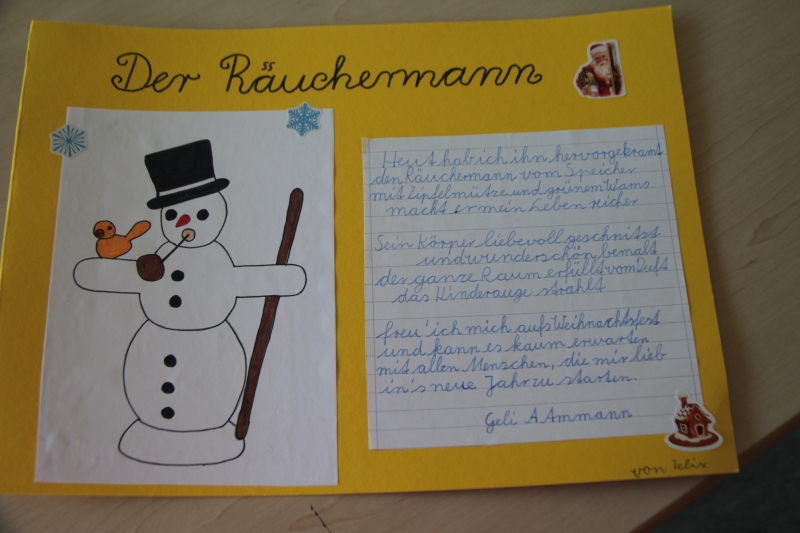 Der Räuchermann
Heut hab ich ihn hervorgekramt
den Räuchermann vom Speicher
mit Zipfelmütze und grünem Wams
macht er mein Leben reicher
Sein Körper liebevoll geschnitzt
und wunderschön bemalt
der ganze Raum erfüllt vom Duft
das Kinderauge strahlt
freu' ich mich aufs Weihnachtsfest
und kann es kaum erwarten
mit allen Menschen, die mir lieb
in's neue Jahr zu starten.
Geli A Ammann
von Felix